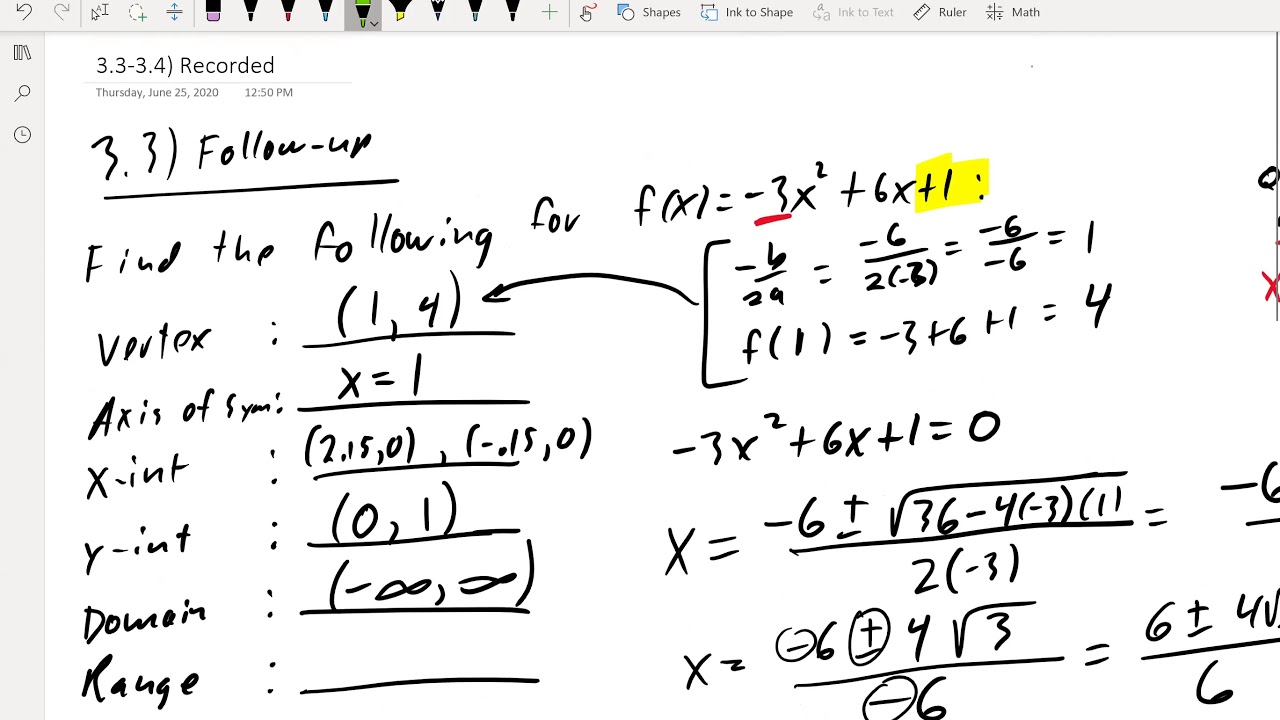 Shapes Ink to Shape Ink to Text Ruler Math
3.3-3.4) Recorded
Thursday, June 25, 2020 12:50 PM
3.3) Follow-up
Find the following for f(x) = -3x² + 6x + 1 :
-b/2a = -6/2(-3) = -6/-6 = 1
f(1) = -3+6+1 = 4
Vertex : (1, 4)
Axis of Sym: x = 1
X-int : (2.15,0) , (-.15,0)
Y-int : (0, 1)
Domain : (-∞, ∞)
Range :
-3x² + 6x + 1 = 0
X = -6 ± √36-4(-3)(1) / 2(-3) = -6
X = -6 ± 4√3 / -6 = 6 ± 4√ / 6